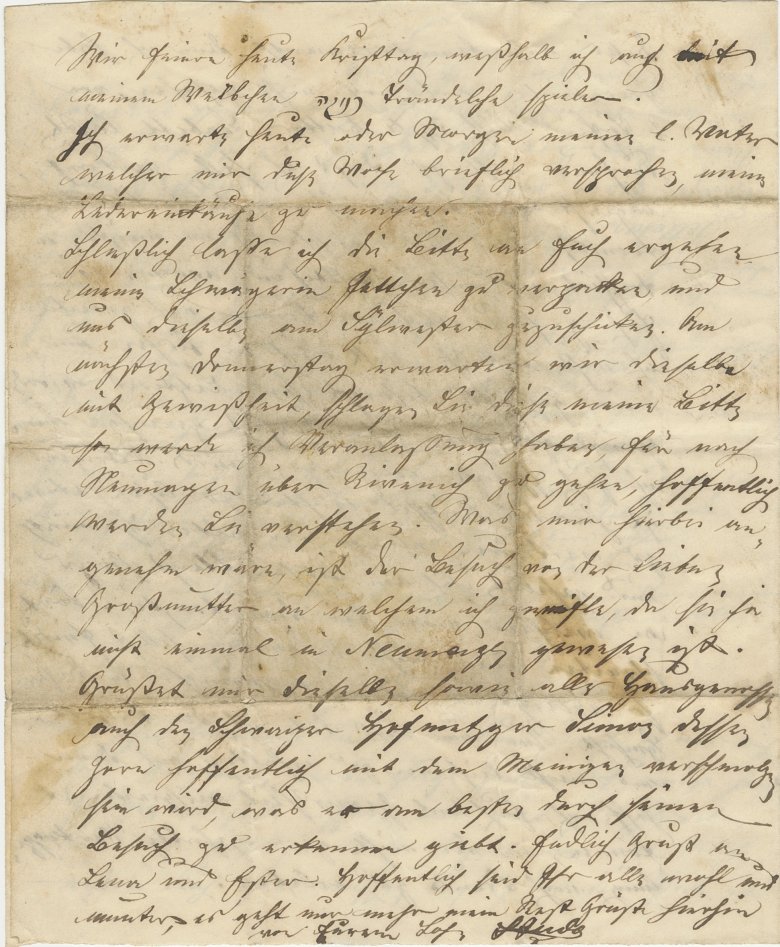 Wir feiern heute Kristtag, weßhalb ich auch mit
meinem Weibchen Trändelche spiele.
Ich erwarte heute oder Morgen meinen l. Vater
welcher mir diese Woche brieflich versprochen, meine
Ledereinkäufe zu machen.
Schließlich lasse ich die Bitte an Euch ergehen
meine Schwägerin Jettchen zu verpacken und
uns dieselbe am Sylvester zuzuschicken. Am
nächsten Donnerstag erwarten wir dieselbe
mit Gewißheit, schlagen Sie diese meine Bitte
so werde ich Veranlassung haben für nach
Neumagen über Rivenich zu gehen, hoffentlich
werden Sie verstehen. Was mir hierbei an-
genehm wäre, ist der Besuch von der lieben
Großmutter an welchem ich zweifle, da sie ja
nicht einmal in Neumagen gewesen ist.
Grüßet mir dieselbe sowie alle Hausgenossen
auch den Schwager Hofmetzger Simon dessen
Zorn hoffentlich mit dem Meinigen verschmolzen
sein wird, was er am besten durch seinen
Besuch zu erkennen giebt. Endlich Gruß an
Lena und Ester. Hoffentlich seid Ihr alle wohl und
munter, es geht nur mehr mein Rest Grüße hierhin
von Eurem Sohn